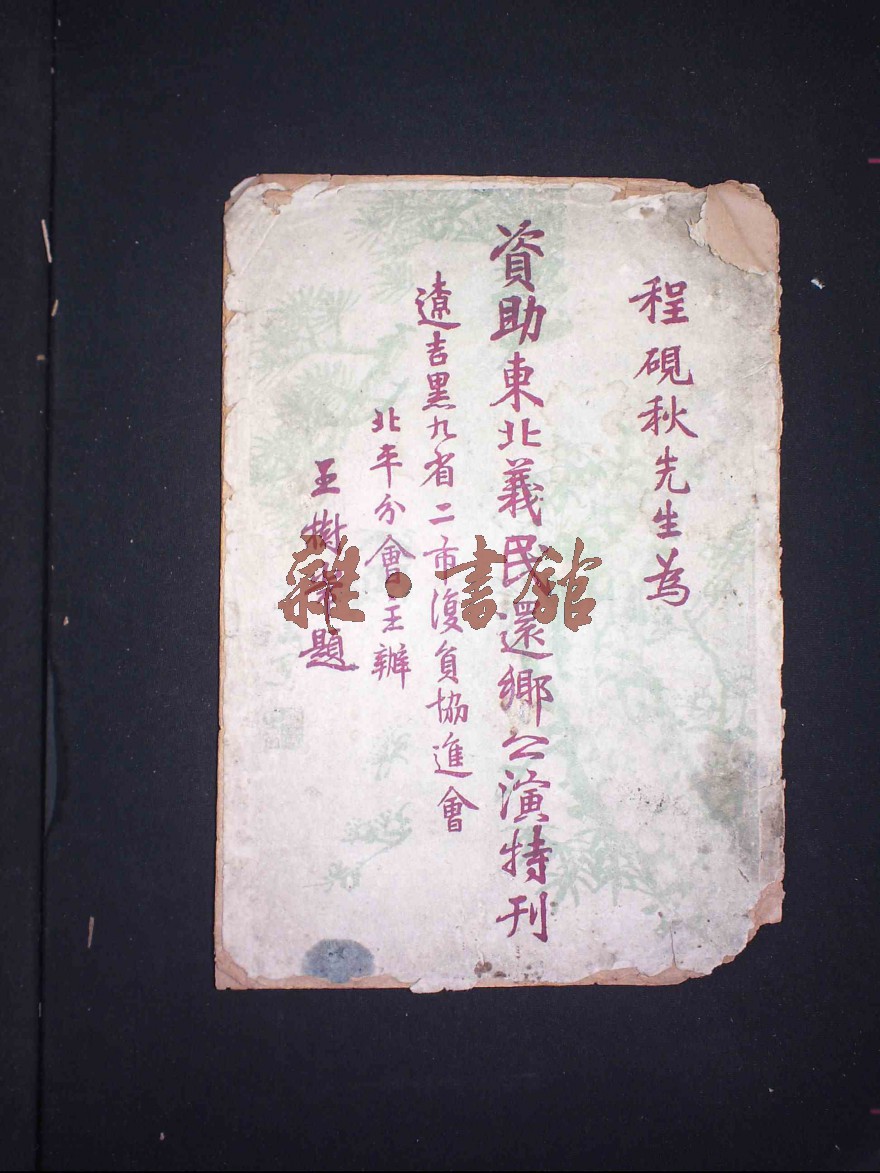 程硯秋先生為
資助東北義民還鄉公演特刊
遼吉黑九省二市復員協進會
北平分會主辦
王樹題
雜·書館